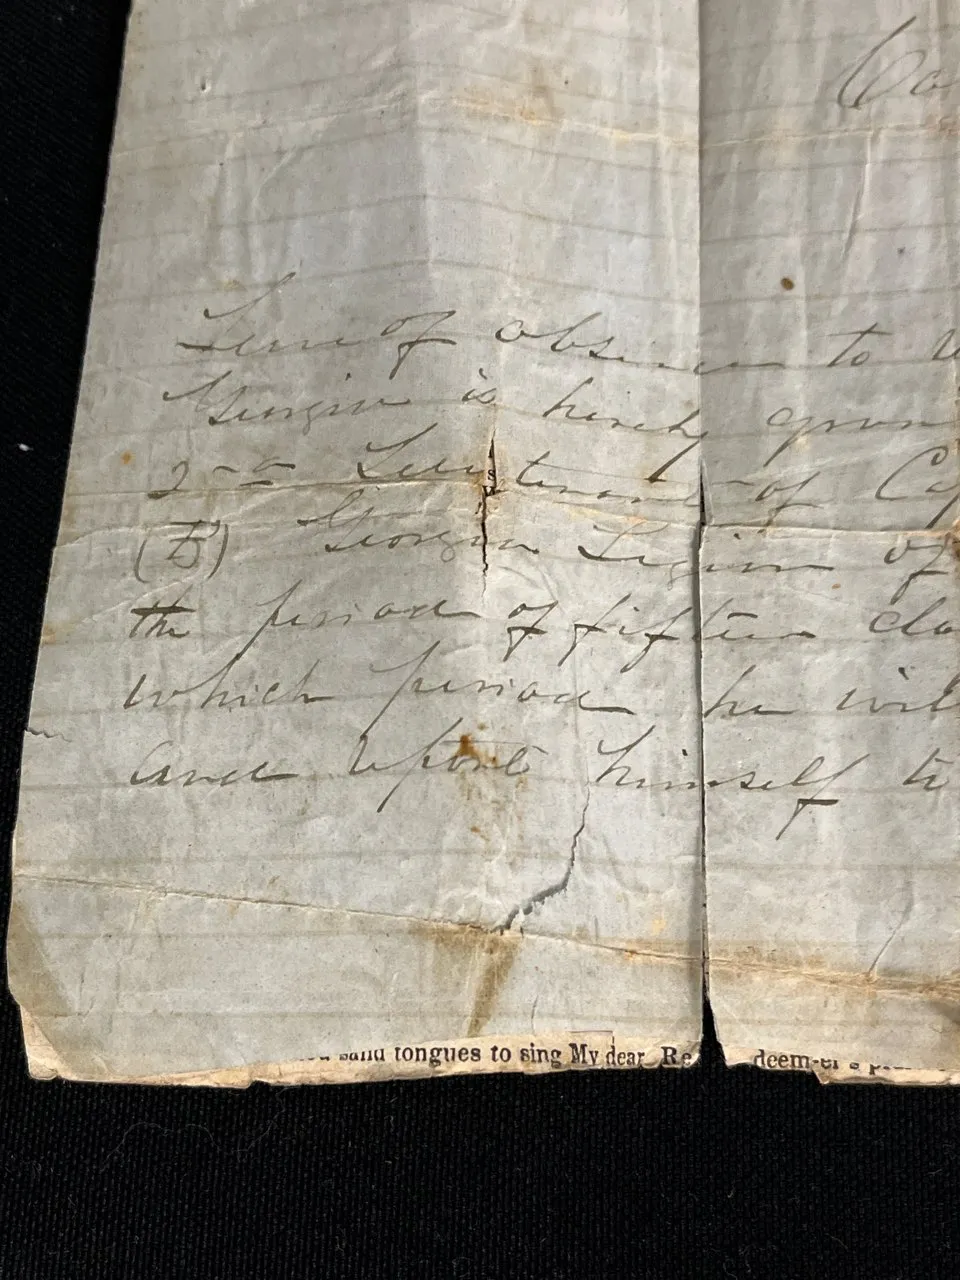 Ca
Leave of absence to v
Georgia is hereby gran
2nd Lieutenant of Ca
(B) Georgia Legion of
the period of fifteen da
which period he wil
and report himself to
sand tongues to sing My dear Re deem-er's